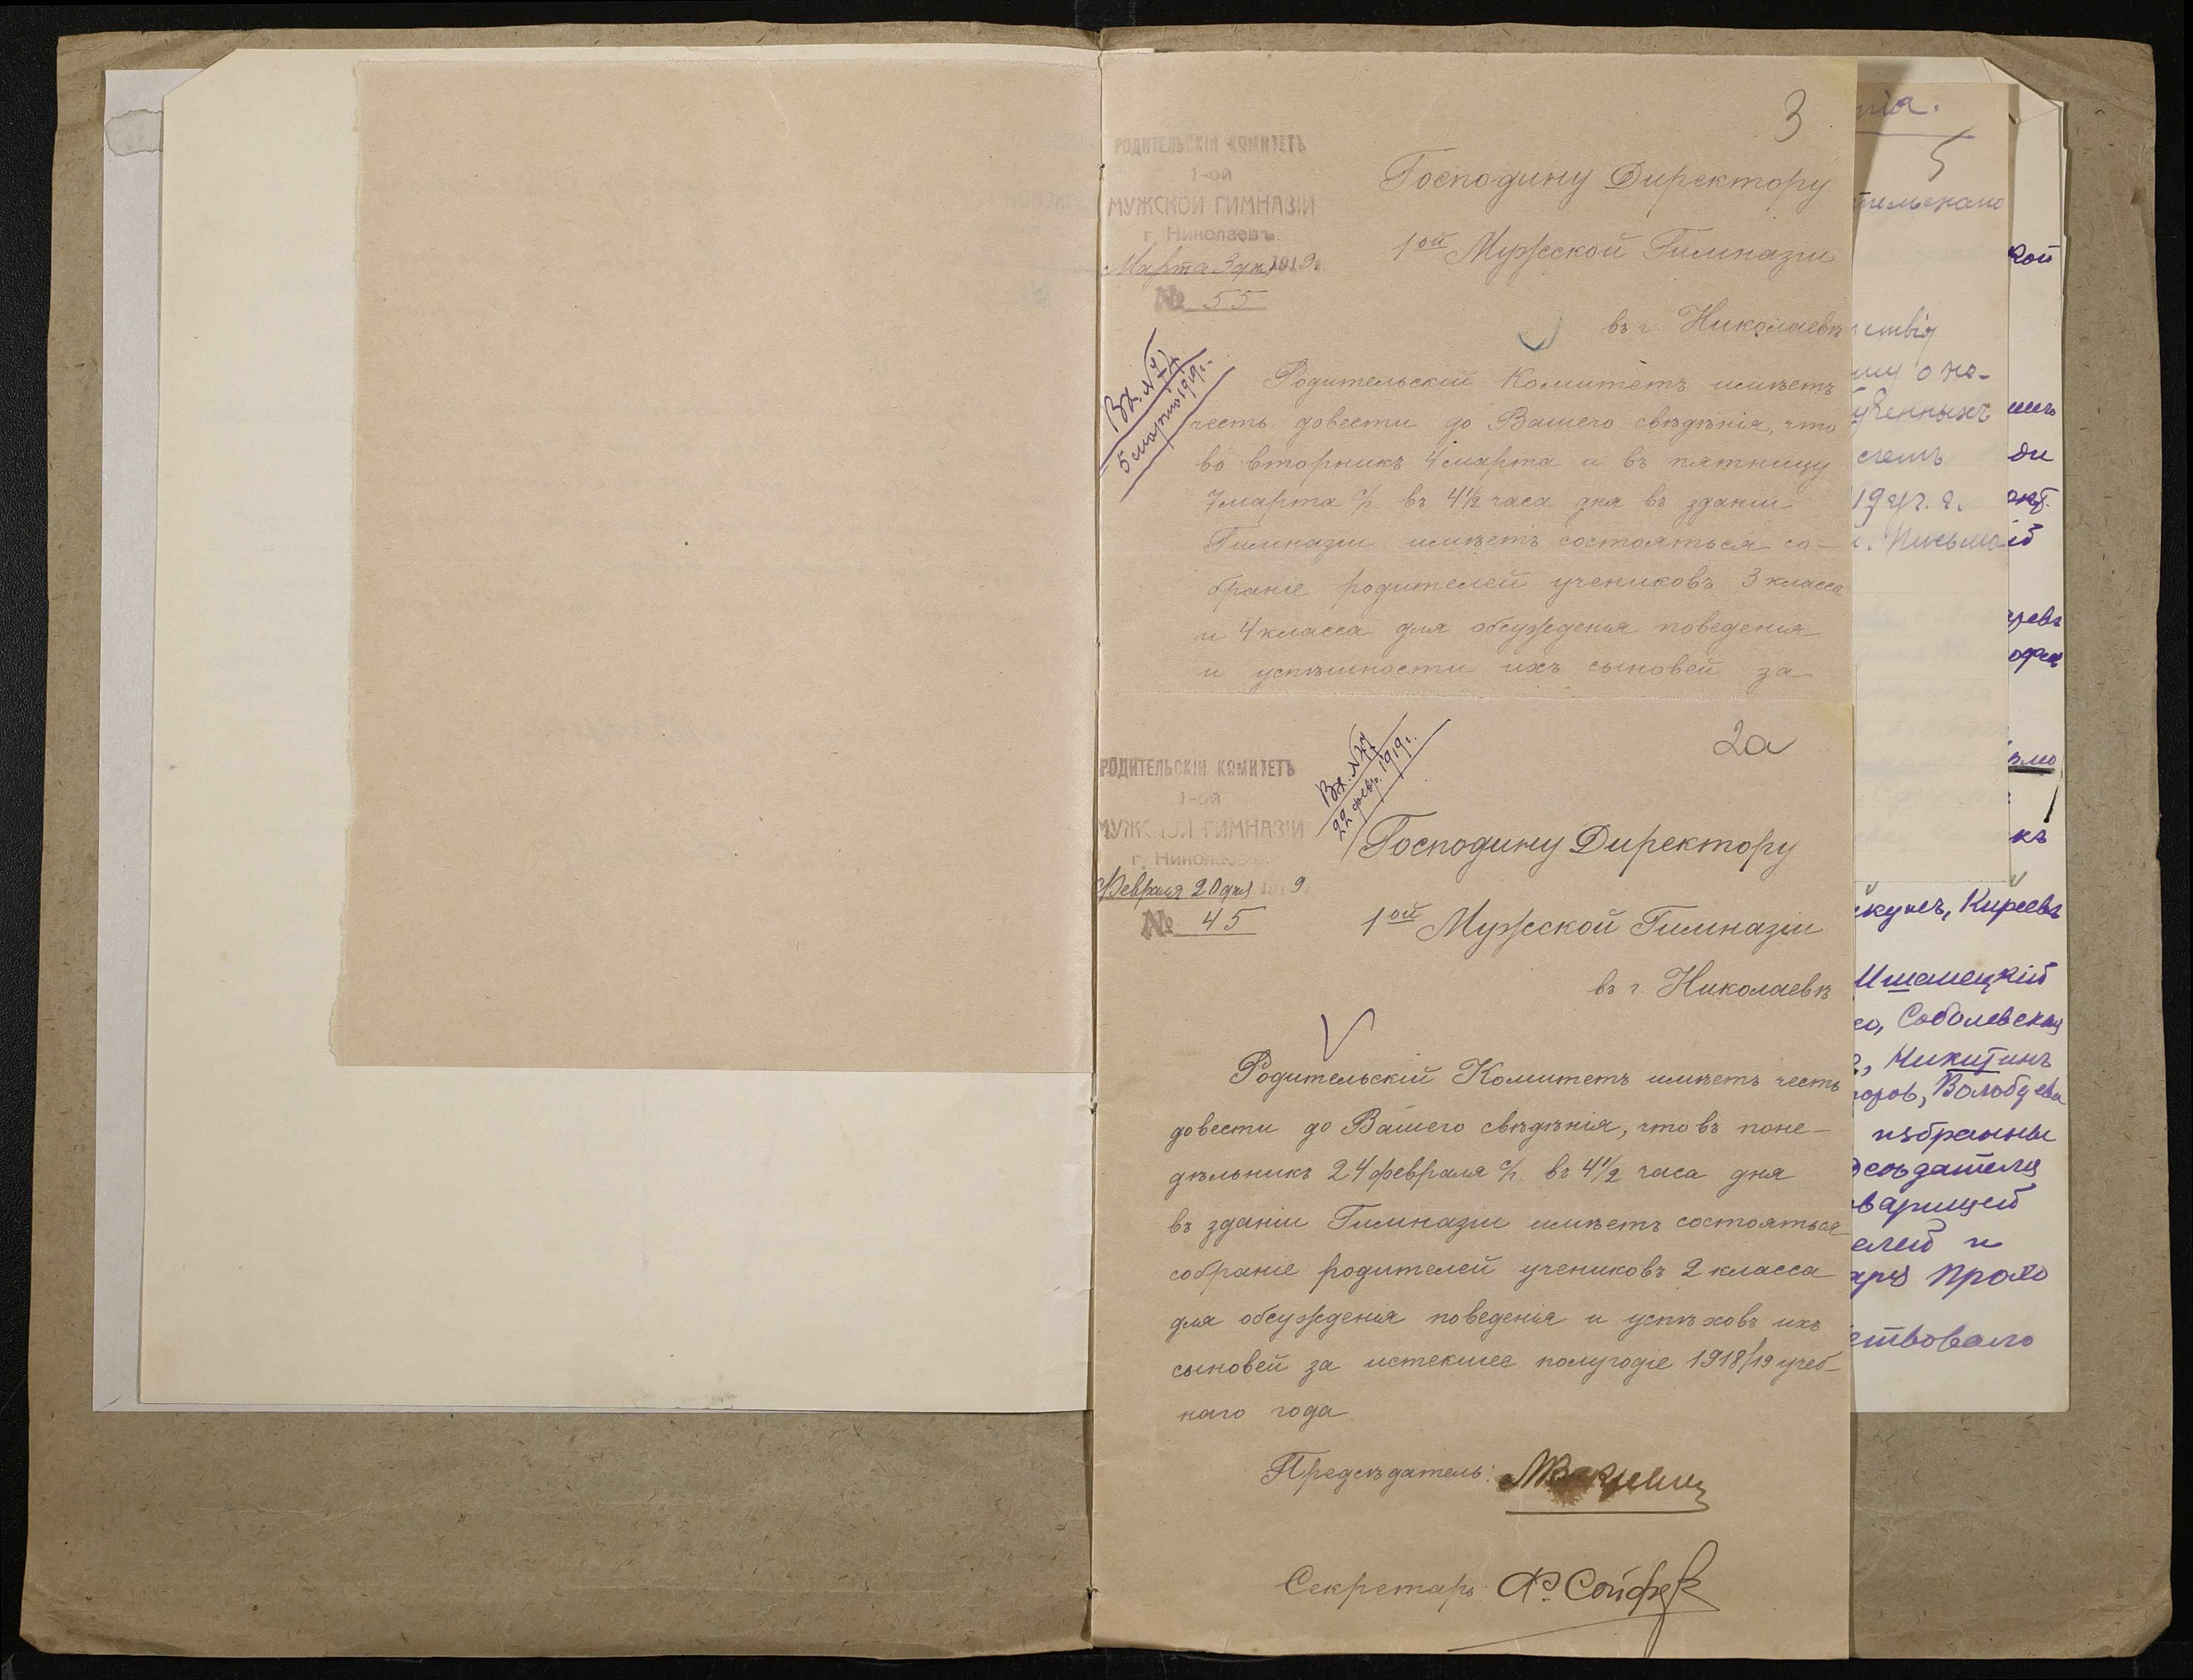 3
РОДИТЕЛЬСКІЙ КОМИТЕТЪ
1-ой
МУЖСКОЙ ГИМНАЗІИ
г. Николаевъ
Марта 3 дня 1919 г.
№ 55
Господину Директору
1ой Мужской Гимназіи
въ г. Николаевѣ
Вх. №
5 марта 1919 г.
Родительскій Комитетъ имѣетъ
честь довести до Вашего свѣдѣнія, что
во вторникъ 4 марта и въ пятницу
7 марта с/г. въ 4 1/2 часа дня въ зданіи
Гимназіи имѣетъ состояться со-
браніе родителей учениковъ 3 класса
и 4 класса для обсужденія поведенія
и успѣшности ихъ сыновей за
2а
РОДИТЕЛЬСКІЙ КОМИТЕТЪ
1-ой
МУЖСКОЙ ГИМНАЗІИ
г. Николаевъ
Февраля 20 дня 1919
№ 45
Вх. №
22 февр. 1919 г.
Господину Директору
1ой Мужской Гимназіи
въ г. Николаевѣ
Родительскій Комитетъ имѣетъ честь
довести до Вашего свѣдѣнія, что въ поне-
дѣльникъ 24 февраля с/г. въ 4 1/2 часа дня
въ зданіи Гимназіи имѣетъ состояться
собраніе родителей учениковъ 2 класса
для обсужденія поведенія и успѣховъ ихъ
сыновей за истекшее полугодіе 1918/19 учеб-
наго года.
Предсѣдатель:
Секретарь: Ф. Сойфер
нія.
5
тельскаго
ствія
о по-
ученныхъ
счетъ
Письмо
кой
ди
ій
къ
Киреевъ
Ишанецкій
Соболевская
Никитинъ
Волобуева
избраны
дсѣдателя
варищей
елей и
аря Прото
ствовало